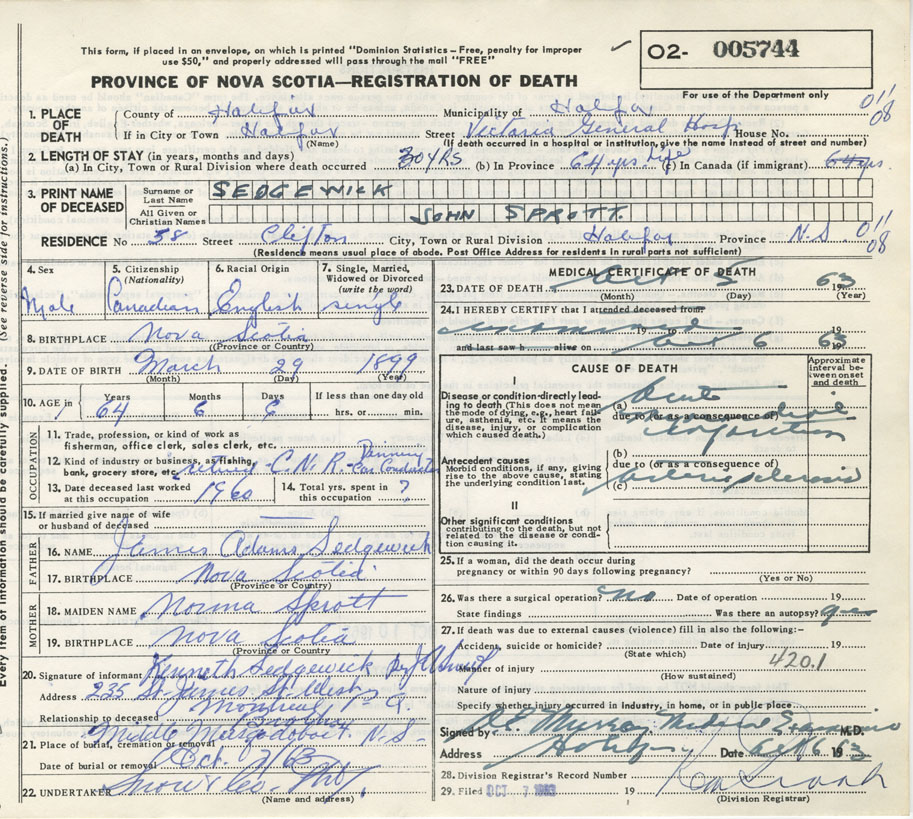 This form, if placed in an envelope, on which is printed "Dominion Statistics – Free, penalty for improper
use $50," and properly addressed will pass through the mail "FREE"
O2- 005744
PROVINCE OF NOVA SCOTIA—REGISTRATION OF DEATH
For use of the Department only
011
08
1. PLACE OF DEATH
County of Halifax Municipality of Halifax
If in City or Town Halifax Street Victoria General Hosp House No.
(Name) (If death occurred in a hospital or institution, give the name instead of street and number)
2. LENGTH OF STAY (in years, months and days)
(a) In City, Town or Rural Division where death occurred 30 YRS (b) In Province 64 yrs life (c) In Canada (if immigrant) 64 yrs
3. PRINT NAME OF DECEASED
Surname or Last Name SEDGEWICK
All Given or Christian Names JOHN SPROTT
RESIDENCE No 58 Street Clifton City, Town or Rural Division Halifax Province N.S. 011 08
(Residence means usual place of abode. Post Office Address for residents in rural parts not sufficient)
4. Sex Male
5. Citizenship (Nationality) Canadian
6. Racial Origin English
7. Single, Married, Widowed or Divorced (write the word) single
8. BIRTHPLACE Nova Scotia
(Province or Country)
9. DATE OF BIRTH March 29 1899
(Month) (Day) (Year)
10. AGE in Years 64 Months 6 Days 6 If less than one day old hrs. or min.
OCCUPATION
11. Trade, profession, or kind of work as fisherman, office clerk, sales clerk, etc.
12. Kind of industry or business, as fishing, bank, grocery store, etc. C.N.R. - Car Conductor
13. Date deceased last worked at this occupation 1960
14. Total yrs. spent in this occupation ?
15. If married give name of wife or husband of deceased
FATHER
16. NAME James Adams Sedgewick
17. BIRTHPLACE Nova Scotia
(Province or Country)
MOTHER
18. MAIDEN NAME Norma Sprott
19. BIRTHPLACE Nova Scotia
(Province or Country)
20. Signature of informant Kenneth Sedgewick
Address 235 St James St West
Montreal P.Q.
Relationship to deceased Brother
21. Place of burial, cremation or removal Middle Musquodoboit N.S.
Date of burial or removal Oct. 7/63
22. UNDERTAKER Snow & Co.
(Name and address)
MEDICAL CERTIFICATE OF DEATH
23. DATE OF DEATH Oct 5 1963
(Month) (Day) (Year)
24. I HEREBY CERTIFY that I attended deceased from
19 to 19
and last saw h alive on Oct 6 1963
CAUSE OF DEATH
Approximate interval between onset and death
I
Disease or condition directly leading to death (This does not mean the mode of dying, e.g., heart failure, asthenia, etc. It means the disease, injury, or complication which caused death.)
(a) Acute
due to (or as consequence of)
myocardial
infarction
Antecedent causes
Morbid conditions, if any, giving rise to the above cause, stating the underlying condition last.
(b)
due to (or as consequence of)
(c) arteriosclerosis
II
Other significant conditions
contributing to the death, but not related to the disease or condition causing it.
25. If a woman, did the death occur during pregnancy or within 90 days following pregnancy?
(Yes or No)
26. Was there a surgical operation? no Date of operation 19
State findings Was there an autopsy? yes
27. If death was due to external causes (violence) fill in also the following:–
Accident, suicide or homicide? Date of injury 19
(State which)
Manner of injury 420.1
(How sustained)
Nature of injury
Specify whether injury occurred in industry, in home, or in public place
Signed by Murray Medical Examiner M.D.
Address Halifax Date Oct 6 1963
28. Division Registrar's Record Number
29. Filed OCT 7 1963 19
(Division Registrar)
Every item of information should be carefully supplied. (See reverse side for instructions.)